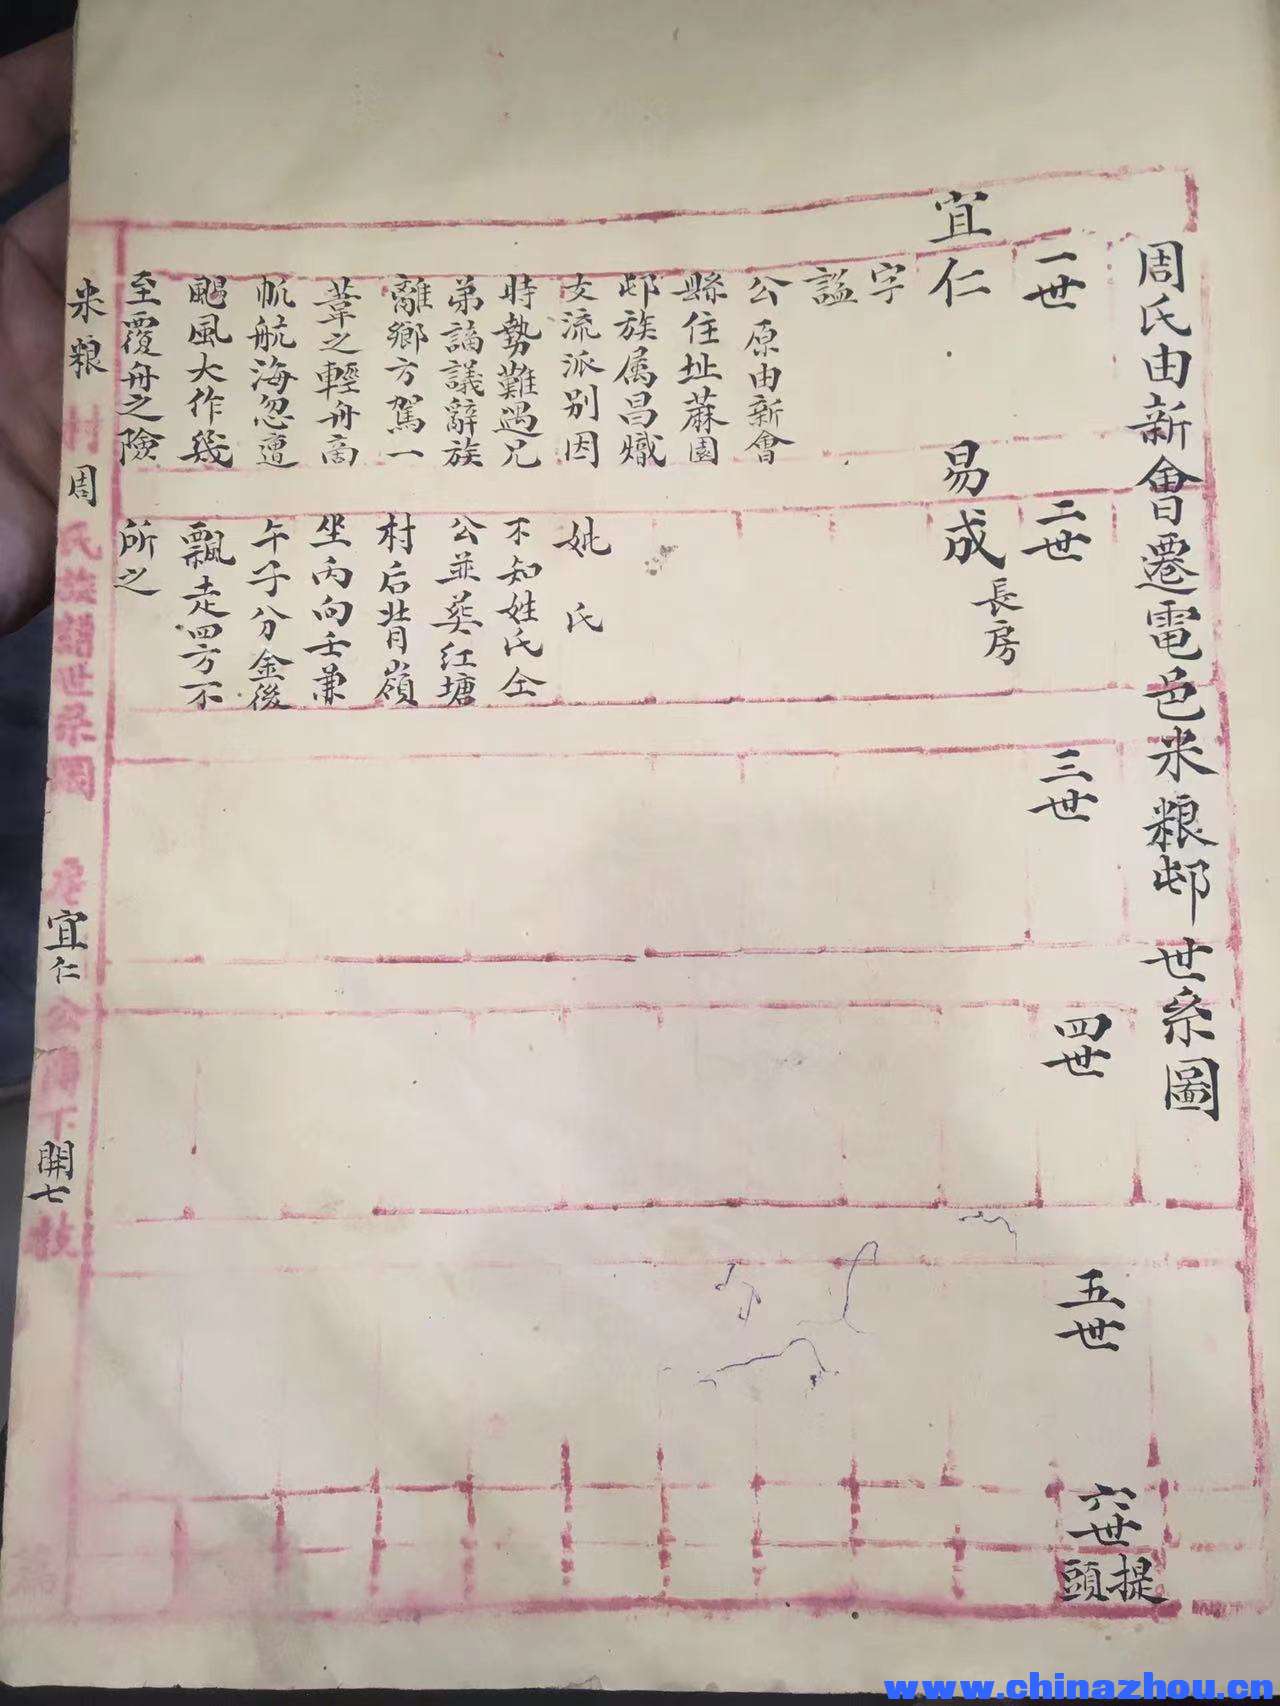 周氏由新會遷電邑米粮邨世系圖
一世
二世
三世
四世
五世
六世
提頭
宜仁
易成
長房
字
謚
公原由新會
縣住址蔴園
邨族属昌熾
支流派别因
時勢難遇兄
弟謫議辭族
離鄉方駕一
葦之輕舟高
帆航海忽遭
颶風大作幾
至覆舟之險
妣氏
不知姓氏仝
公並葬红塘
村后背嶺
坐丙向壬兼
午子分金後
飄走四方不
所之
米粮村周氏族譜世系圖
宜仁公傳下開七枝
www.chinazhou.cn